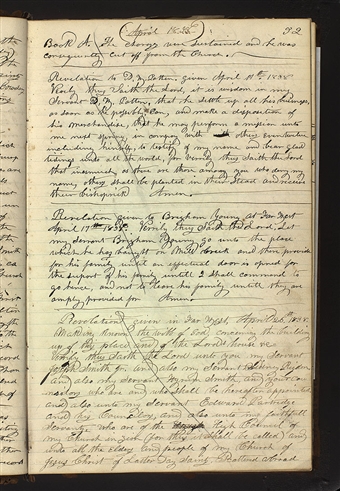 April 1838
32
Book A. The charges were sustained and he was
consequently cut off from the Church.
Revelation to D. W. Patten, given April 11th 1838
Verily thus Saith the Lord, it is wisdom in my
Servant D. W. Patten, that he settle up all his business,
as soon as he possibly can, and make a disposition of
his merchandise, that he may perform a mission unto
me next spring, in company with others even twelve
including himself, to testify of my name and bear glad
tidings unto all the world, for verily thus Saith the Lord
that inasmuch as there are those among you who deny my
name, others shall be planted in their stead and receive
their bishoprick Amen.
Revelation given to Brigham Young at Far West
April 17th 1838. Verily thus Saith the Lord, Let
my Servant Brigham Young go unto the place
which he has bought on Mill Creek and there provide
for his family until an effectual door is opened for
the support of his family until I shall command to
go hence, and not to leave his family until they are
amply provided for Amen.
Revelation given in Far West, April 26th 1838
Making known the will of God, concerning the building
up of this place and of the Lord's house &c
Verily thus Saith the Lord unto you my Servant
Joseph Smith Jr. and also my Servant Sidney Rigdon
and also my Servant Hyrum Smith, and your coun-
selors who are and who shall be hereafter appointed
and also unto my Servant Edward Partridge
and his Councilors, and also unto my faithful
Servants, who are of the High Council of
my Church in Zion (for thus it shall be called) and
unto all the Elders and people of my Church of
Jesus Christ of Latter Day Saints, Scattered abroad